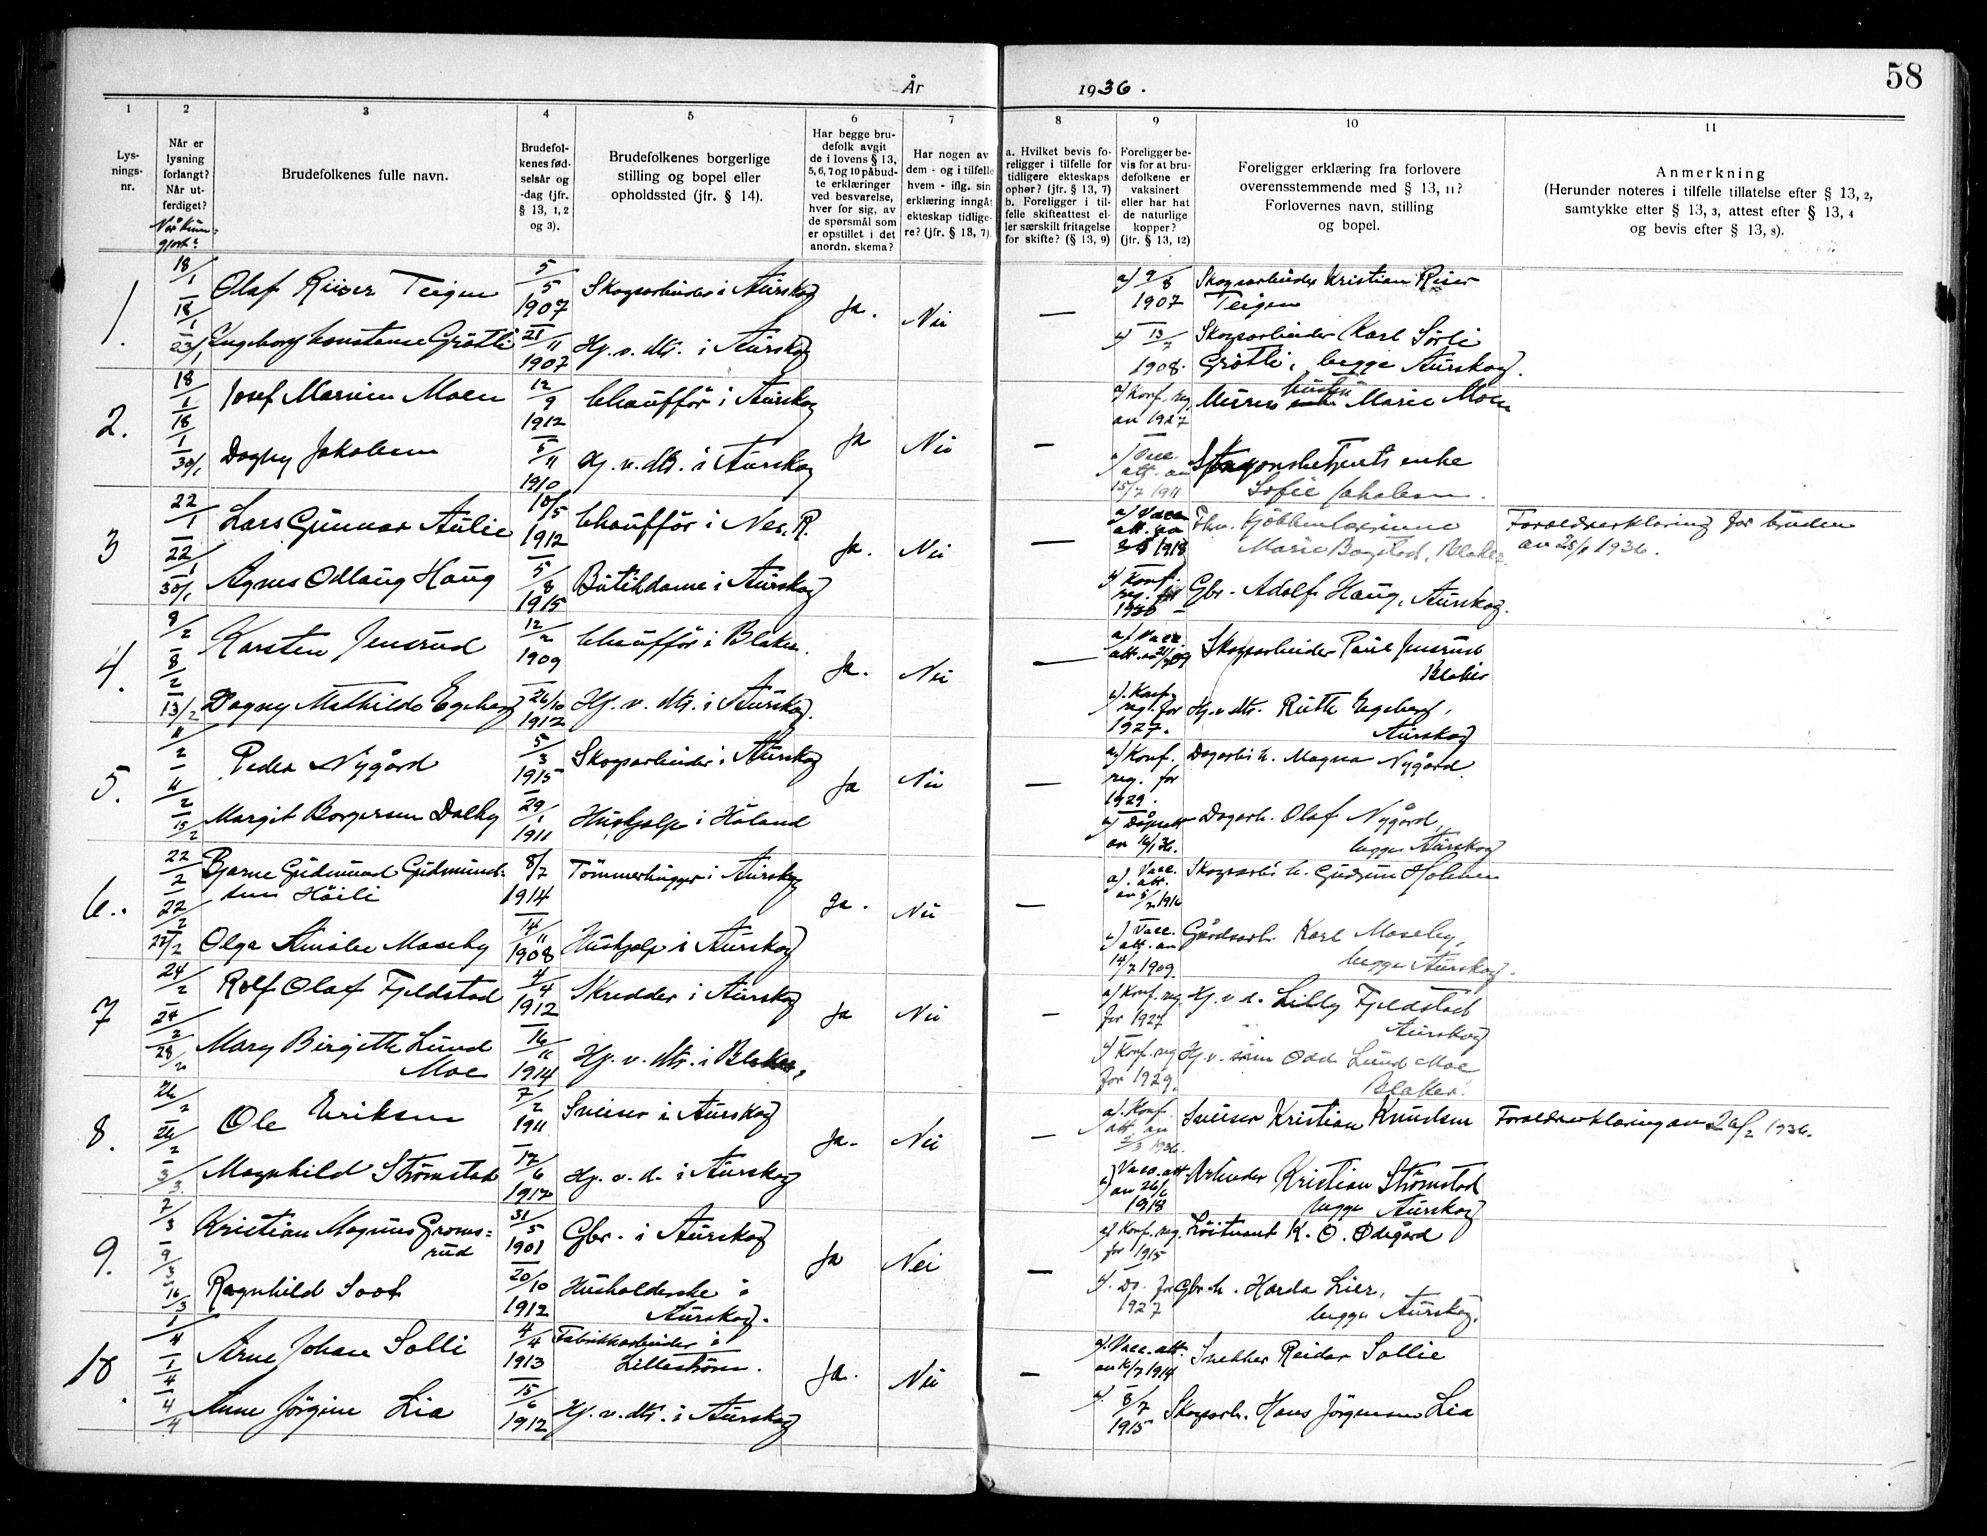 58
År 1936.
1
2
3
4
5
6
7
8
9
10
11
Lys-
nings-
nr.
Når er
lysning
forlangt?
Når ut-
ferdiget?
Brudefolkenes fulle navn.
Brudefol-
kenes fød-
selsår og
-dag (jfr.
§ 13, 1, 2
og 3).
Brudefolkenes borgerlige
stilling og bopel eller
opholdssted (jfr. § 14).
Har begge bru-
defolk avgit
de i lovens § 13,
5, 6, 7 og 10 påbud-
te erklæringer
ved besvarelse,
hver for sig, av
de spørsmål som
er opstillet i det
anordn. skema?
Har nogen av
dem - og i tilfelle
hvem - iflg. sin
erklæring inngåt
ekteskap tidlige-
re? (jfr. § 13, 7).
a. Hvilket bevis fo-
religger i tilfelle for
tidligere ekteskaps
ophør? (jfr. § 13, 7)
b. Foreligger i til-
felle skifteattest el-
ler særskilt fritagelse
for skifte? (§ 13, 9)
Foreligger be-
vis for at bru-
defolkene er
vaksinert
eller har hat
de naturlige
kopper?
(jfr. § 13, 12)
Foreligger erklæring fra forlovere
overensstemmende med § 13, 11?
Forlovernes navn, stilling
og bopel.
Anmerkning
(Herunder noteres i tilfelle tillatelse efter § 13, 2,
samtykke efter § 13, 3, attest efter § 13, 4
og bevis efter § 13, 8).
1.
18/1
18/1
23/1
Olaf Teigen
5/5
1907
Skogsarbeider i Aurskog
Ja.
Nei
—
a) 9/8
1907
Skogsarbeider Kristian Reiser
Teigen
Ingeborg Konstanse Grøtli
21/11
1907
Hj. v. dtr. i Aurskog
13/7
1908.
Skogsarbeider Karl Sørli
Grøtli, begge Aurskog.
2.
18/1
18/1
30/1
Josef Marius Moen
12/9
1912
Chauffør i Aurskog
Ja
Nei
—
a) Konf. reg.
av 1927
Murer hustru Marie Moen
Dagny Jakobsen
5/11
1910
Hj. v. dtr. i Aurskog
Vacc.
att. av
15/7 1911
Stasjonsbetjents enke
Sofie Jakobsen.
3
22/1
22/1
30/1
Lars Gunnar Aulie
10/5
1912
Chauffør i Nes. R.
Ja.
Nei
—
a) Vacc.
att. av
1918
Marie Bogstad, Blaker
Foreldreerklæring for bruden
av 25/1 1936.
Agnes Odlaug Haug
5/8
1915
Butikdame i Aurskog
Konf.
reg. for
1930
Gbr. Adolf Haug, Aurskog.
4.
8/2
8/2
13/2
Karsten Jensrud
12/2
1909
Chauffør i Blaker.
Ja.
Nei
—
a) Vacc.
att. av
Skogsarbeider Paul Jensrud
Blaker
Dagny Mathilde Engeberg
26/10
1912
Hj. v. dtr. i Aurskog.
Konf.
reg. for
1927.
Hj. v. dtr. Ruth Engeberg,
Aurskog
5.
11/2
11/2
15/2
Peder Nygård
5/3
1915
Skogsarbeider i Aurskog
Ja
Nei
—
a) Konf.
reg. for
1929.
Dagarb. h. Magna Nygård.
Margit Borgersen Dalby
29/1
1911
Hushjelp i Høland
Dåpsatt.
av 16/1 36.
Dagarb. Olaf Nygård,
begge Aurskog
6.
22/2
22/2
27/2
Bjarne Gudmund Gudmund-
sen Høili
8/7
1914
Tømmerhugger i Aurskog
Ja.
Nei
—
a) Vacc.
att.
1916
Skogsarb. h. Gudrun Holmen
Olga Amalie Moseby
14/11
1908
Hushjelp i Aurskog
Vacc.
att. av
14/7 1909.
Gårdsarb. Karl Moseby,
begge Aurskog.
7
24/2
24/2
28/2
Rolf Olaf Fjeldstad
4/4
1912
Skredder i Aurskog
Ja
Nei
—
a) Konf. reg.
for 1927
Hj. v. d. Lilly Fjeldstad
Aurskog
Mary Birgitte Lund
Moe
16/11
1914
Hj. v. dtr. i Blaker,
Konf. reg
for 1929.
Hj. v. sønn Odd Lund Moe
Blaker.
8.
26/2
26/2
3/3
Ole Eriksen
7/2
1911
Sveiser i Aurskog
Ja.
Nei
—
a) Konf.
att. av
2/3 1936.
Sveiser Kristian Knudsen
Foreldreerklæring av 26/2 1936.
Magnhild Strømstad
17/6
1917
Hj. v. d. i Aurskog
Vacc. att
av 26/6
1918
Arbeider Kristian Strømstad
begge Aurskog
9.
7/3
9/3
16/3
Kristian Magnus Groms-
rud
31/5
1901
Gbr. i Aurskog
Ja
Nei
—
a) Konf. reg.
for 1915
Løitnant K. O. Ødegård
Ragnhild Soot
20/10
1912
Husholderske i
Aurskog.
Do. for
1927
Gbr. h. Harda Lier,
begge Aurskog.
10
1/4
1/4
4/4
Arne Johan Solli
4/4
1913
Fabrikkarbeider i
Lillestrøm.
Ja.
Nei
—
a) Vacc. att.
1914
Snekker Reidar Sollie
Anne Jørgine Lia
15/6
1912
Hj. v. dtr. i Aurskog
8/7
1915
Skogsarb. Hans Jørgensen Lia